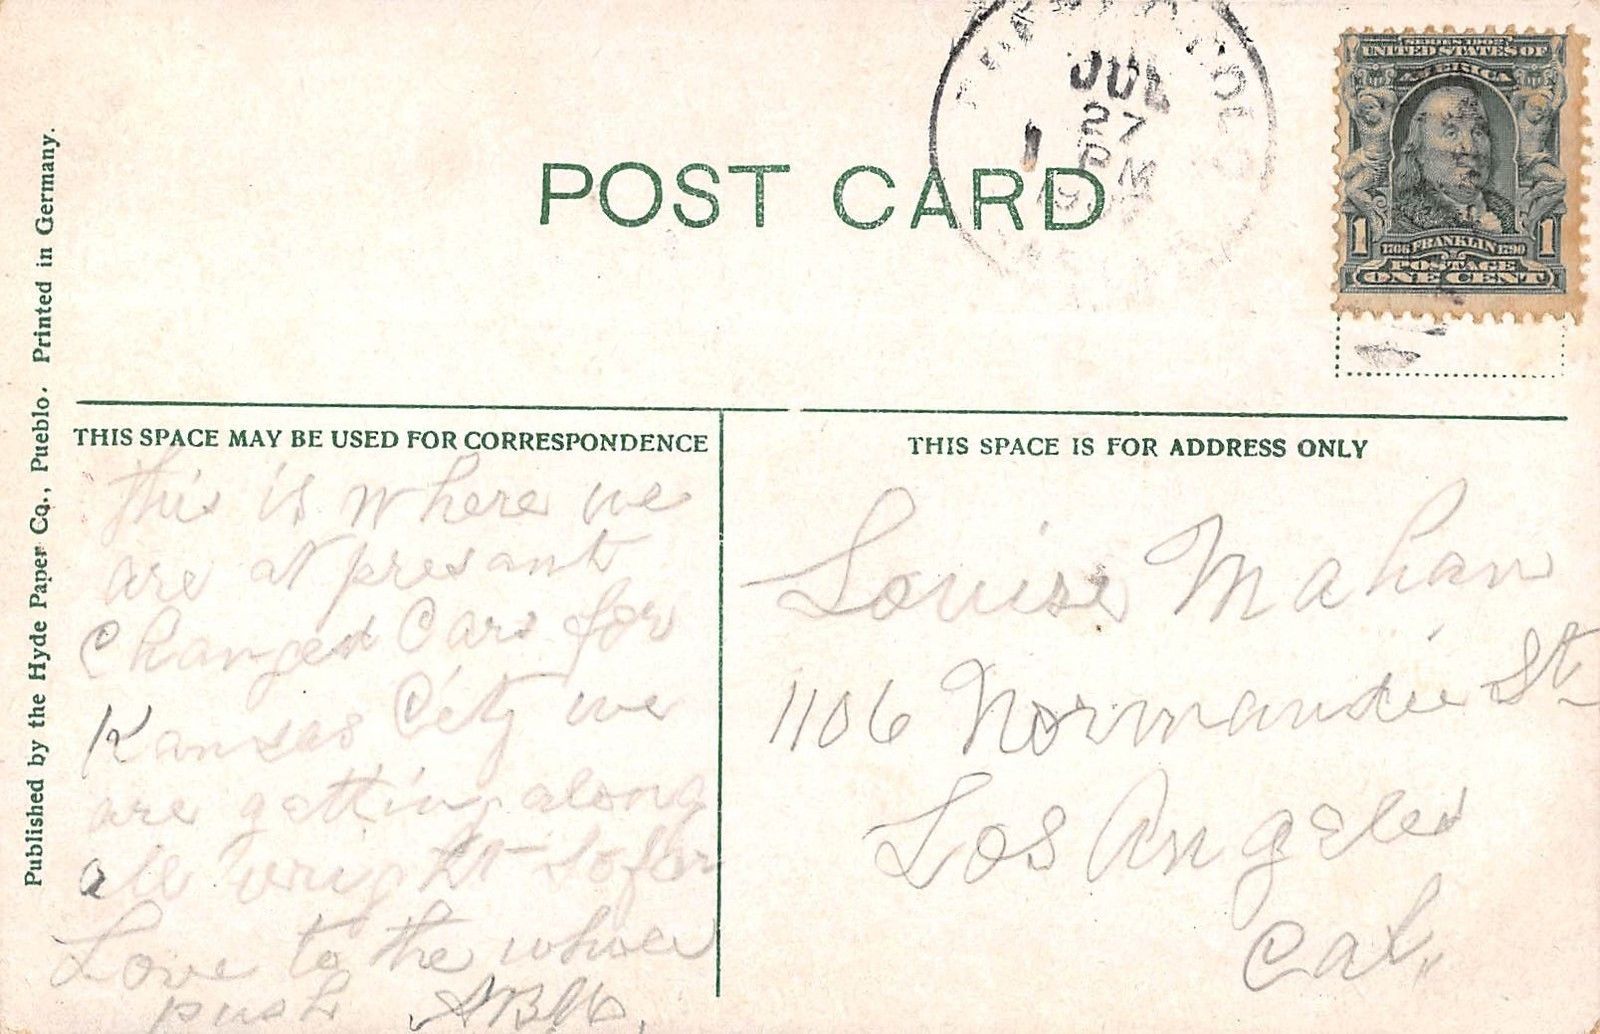 JUL
27
1 PM
SERIES 1902
UNITED STATES OF
AMERICA
1 1706 FRANKLIN 1790 1
POSTAGE
ONE CENT
POST CARD
Published by the Hyde Paper Co., Pueblo. Printed in Germany.
THIS SPACE MAY BE USED FOR CORRESPONDENCE
this is where we
are at presant
Changed Cars for
Kansas City we
are getting along
all wright sofar
Love to the whole
push
THIS SPACE IS FOR ADDRESS ONLY
Louise Mahan
1106 Normandie St
Los Angeles
Cal,,